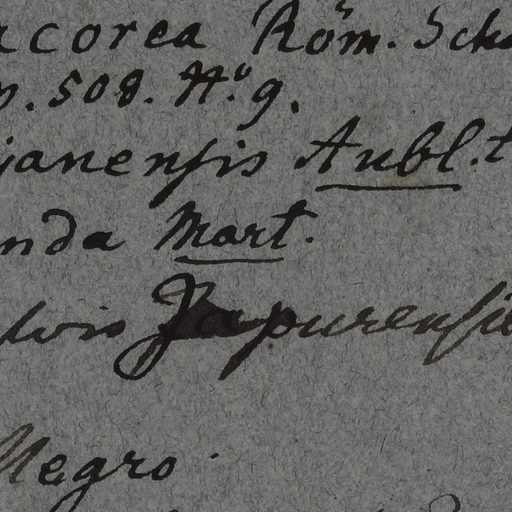 acorea Röm. Sch
p. 508. No. 9.
janensis Aubl. t
nda Mart.
lvis Japurensi
Negro.